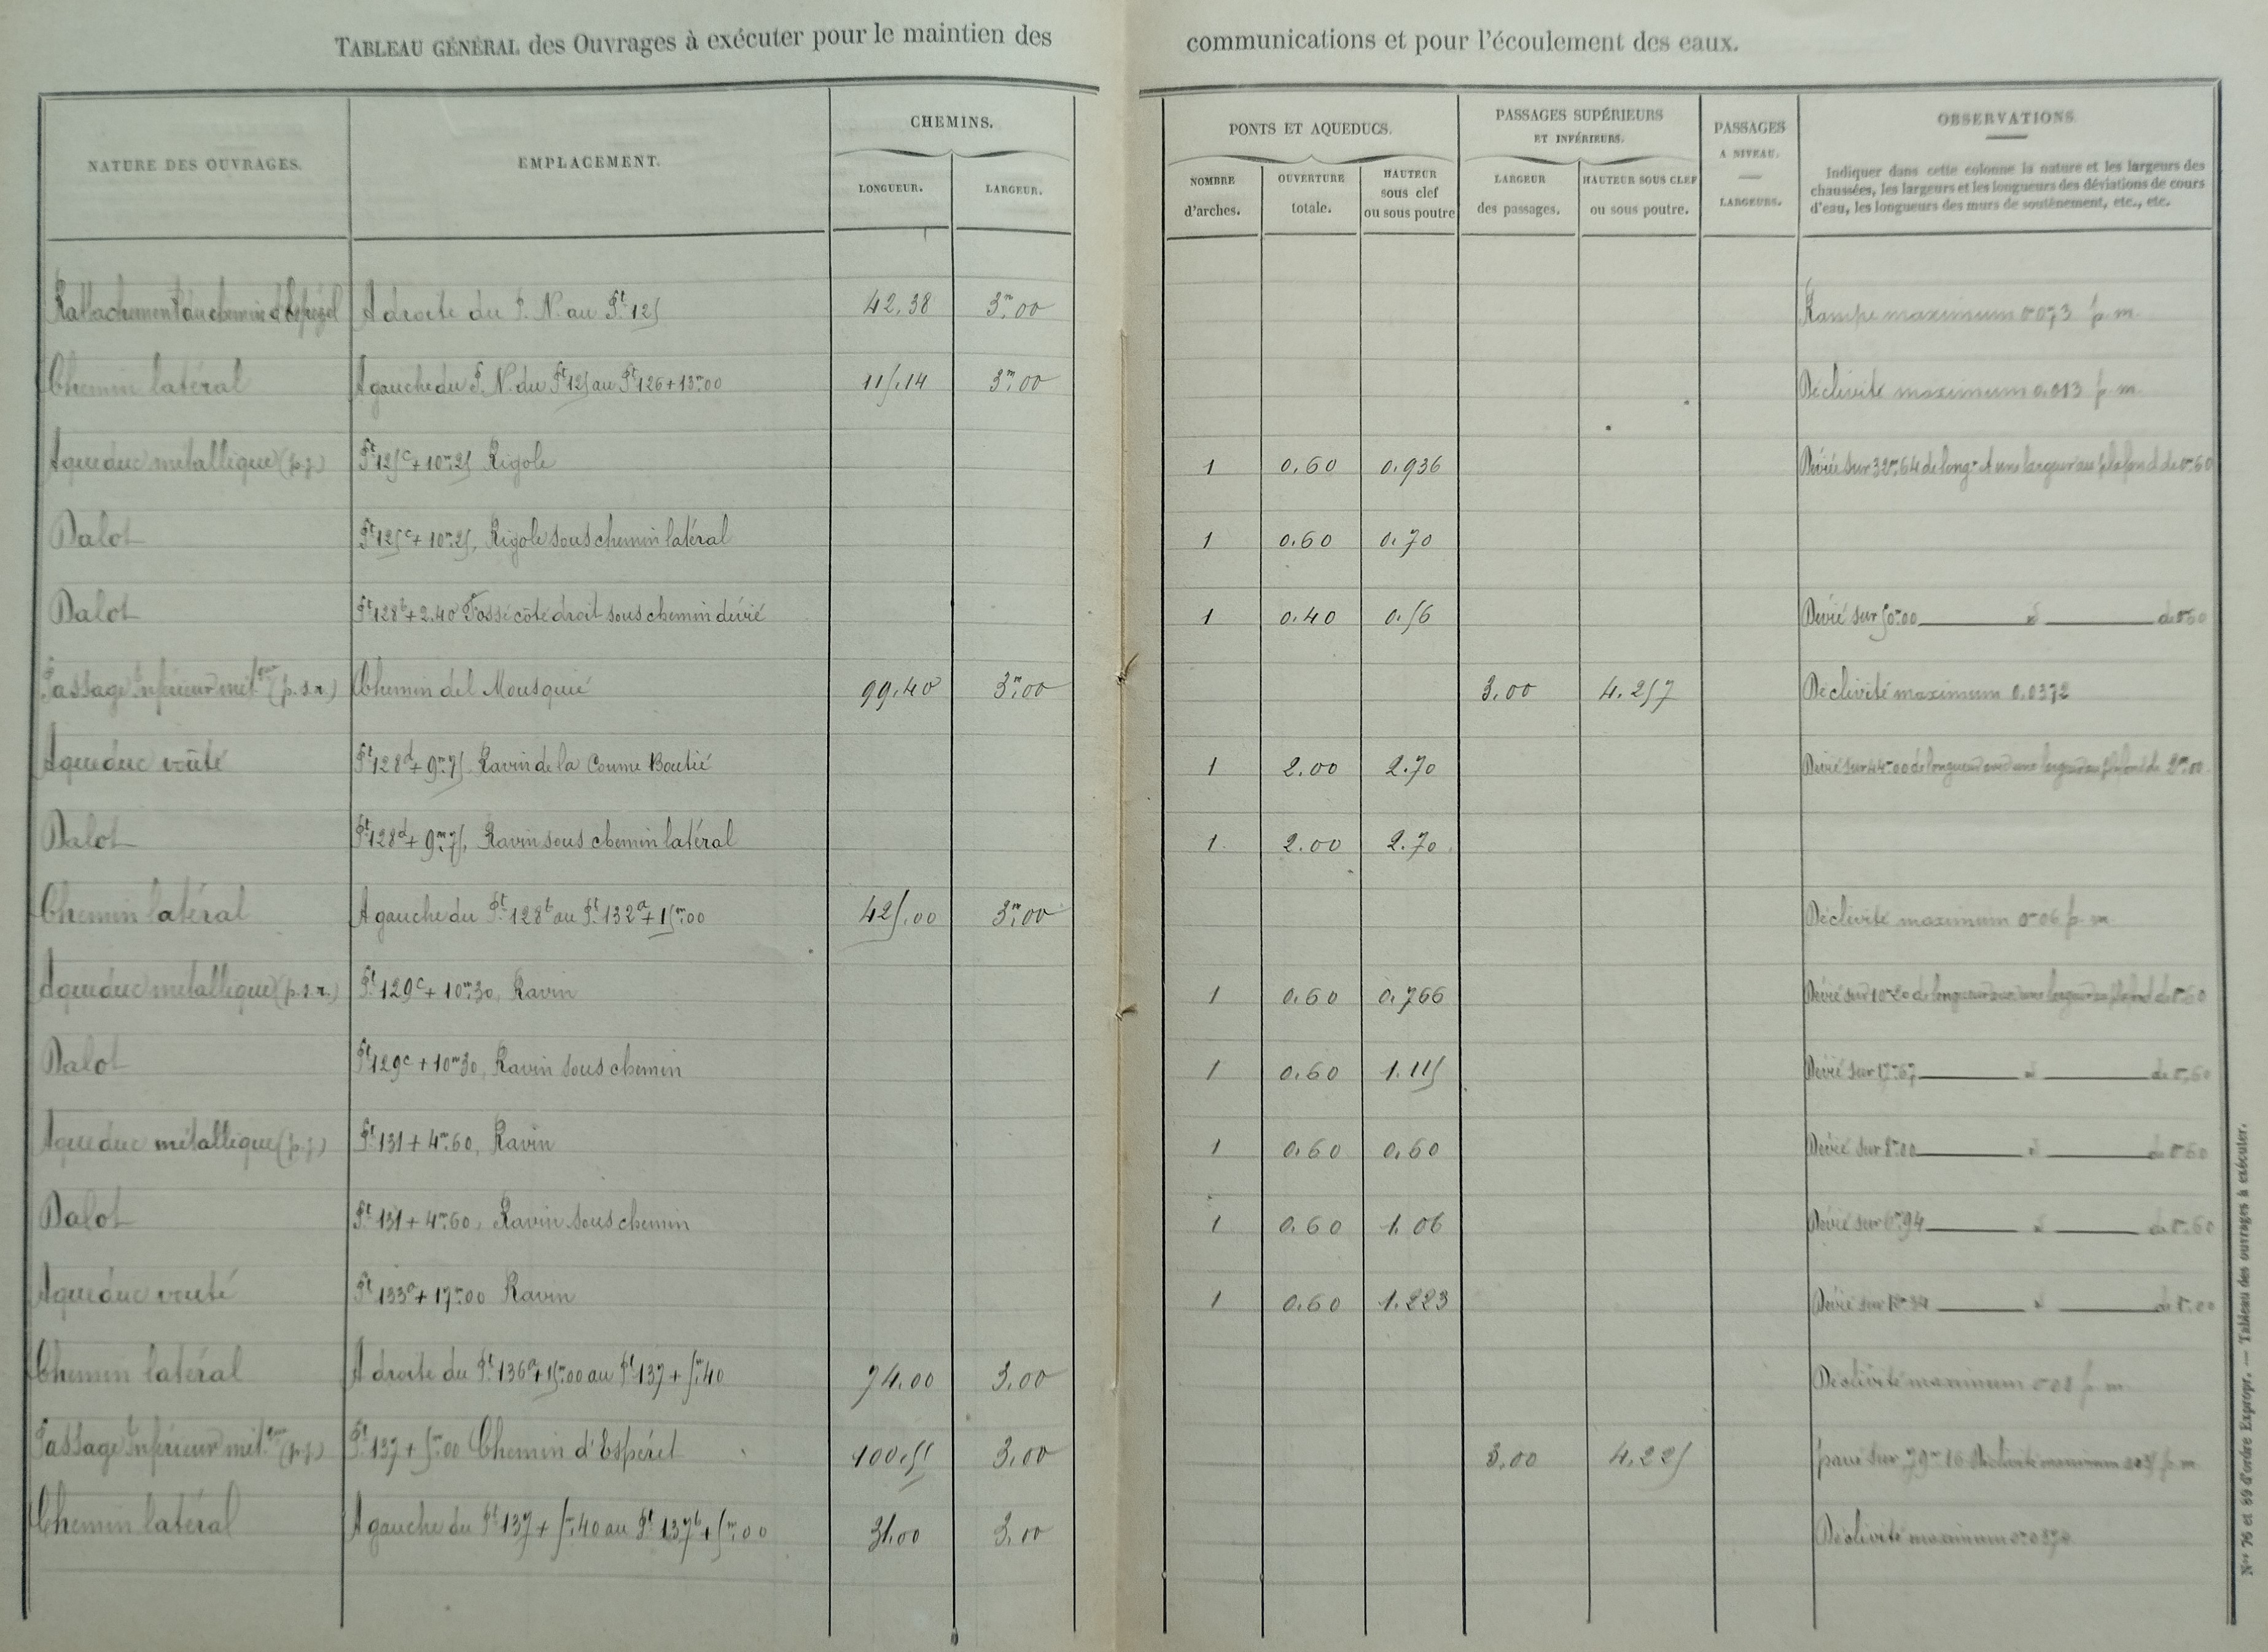 TABLEAU GÉNÉRAL des Ouvrages à exécuter pour le maintien des communications et pour l'écoulement des eaux.
NATURE DES OUVRAGES. EMPLACEMENT. CHEMINS. LONGUEUR. LARGEUR.
PONTS ET AQUEDUCS. NOMBRE d'arches. OUVERTURE totale. HAUTEUR sous clef ou sous poutre
PASSAGES SUPÉRIEURS ET INFÉRIEURS. LARGEUR des passages. HAUTEUR SOUS CLEF ou sous poutre.
PASSAGES A NIVEAU. LARGEURS.
OBSERVATIONS
Indiquer dans cette colonne la nature et les largeurs des
chaussées, les largeurs et les longueurs des déviations de cours
d'eau, les longueurs des murs de soutènement, etc., etc.
Rattachement du chemin d' A droite du P. N. au Pt 125 42,38 3m,00 Rampe maximum 0,073 p. m.
Chemin latéral A gauche du P. N. du Pt 125 au Pt 126 + 13m,00 115,14 3m,00 Déclivité maximum 0.013 p. m.
Aqueduc métallique (p.j.) Pt 125c + 10m,25 Rigole 1 0.60 0.936 Dévié sur 32m,64 de longr et une largeur au plafond de 0m,60
Dalot Pt 125c + 10m,25, Rigole sous chemin latéral 1 0.60 0.70
Dalot Pt 128b + 2.40 Fossé côté droit sous chemin dévié 1 0.40 0.56 Dévié sur 50m,00 — d° — de 0m60
Passage Inférieur mét.que (p.s.r.) Chemin del Mousquié 99.40 3m,00 3.00 4.257 Déclivité maximum 0.0372
Aqueduc voûté Pt 128d + 9m,75 Ravin de la Coume Boutié 1 2.00 2.70 Dévié sur 44m,00 de longueur avec une largeur au plafond de 2m,00
Dalot Pt 128d + 9m,75, Ravin sous chemin latéral 1 2.00 2.70
Chemin latéral A gauche du Pt 128b au Pt 132a + 15m,00 425.00 3m,00 Déclivité maximum 0m06 p. m.
Aqueduc métallique (p.s.r.) Pt 129c + 10m,30, Ravin 1 0.60 0.766 Dévié sur 10m20 de longueur avec une largeur au plafond de 0m60
Dalot Pt 129c + 10m30, Ravin sous chemin 1 0.60 1.115 Dévié sur — d° — de 0m,60
Aqueduc métallique (p.j.) Pt 131 + 4m,60, Ravin 1 0.60 0.60 Dévié sur 8m,00 — d° — de 0m60
Dalot Pt 131 + 4m,60, Ravin sous chemin 1 0.60 1.06 Dévié sur — d° — de 0m,60
Aqueduc voûté Pt 133c + 17m,00 Ravin 1 0.60 1.223 Dévié sur — d° — de
Chemin latéral A droite du Pt 136a + 15m,00 au Pt 137 + 5m,40 74.00 3.00 Déclivité maximum 0m08 p. m.
Passage Inférieur mét.que (p.j.) Pt 137 + 5m,00 Chemin d'Espérel 100.55 3.00 3.00 4.225 pavé sur 79m16 Déclivité maximum p. m.
Chemin latéral A gauche du Pt 137 + 5m,40 au Pt 137b + 5m,00 31.00 3.00 Déclivité maximum
Nos 76 et 89 d'ordre Expropr. — Tableau des ouvrages à exécuter.